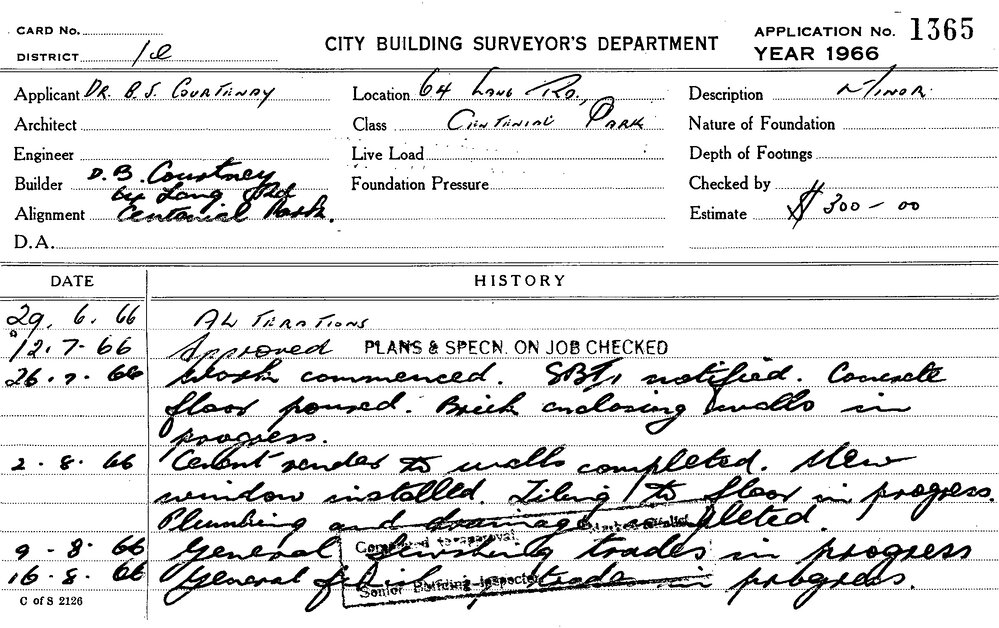 CARD No.
DISTRICT 1d
CITY BUILDING SURVEYOR'S DEPARTMENT
APPLICATION No. 1365
YEAR 1966
Applicant DR. B. S. COURTENAY
Location 64 LANG RD.,
Description MINOR
Architect
Class CENTENIAL PARK
Nature of Foundation
Engineer
Live Load
Depth of Footings
Builder D. B. Courtney
64 Lang Rd
Foundation Pressure
Checked by
Alignment Centenial Park.
Estimate $ 300 - 00
D.A.
DATE HISTORY
29. 6. 66 ALTERATIONS
12. 7. 66 Approved PLANS & SPECN. ON JOB CHECKED
26. 7. 66 Work commenced. notified. Concrete
floor poured. Brick enclosing walls in
progress.
2. 8. 66 Cement render to walls completed. New
window installed. Tiling to floor in progress.
Plumbing and drainage completed.
9. 8. 66 General finishing trades in progress
16. 8. 66 General finishing trades in progress.
Completed to approval
Senior Building Inspector
C of S 2126